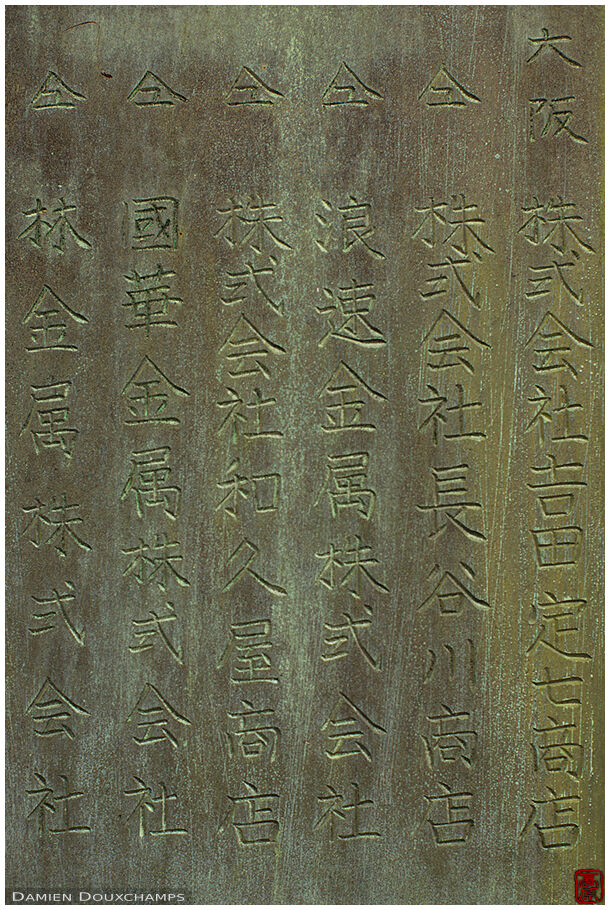 大阪 株式会社吉田定七商店
仝 株式会社長谷川商店
仝 浪速金属株式会社
仝 株式会社和久屋商店
仝 國華金属株式会社
仝 林金属株式会社
DAMIEN DOUXCHAMPS